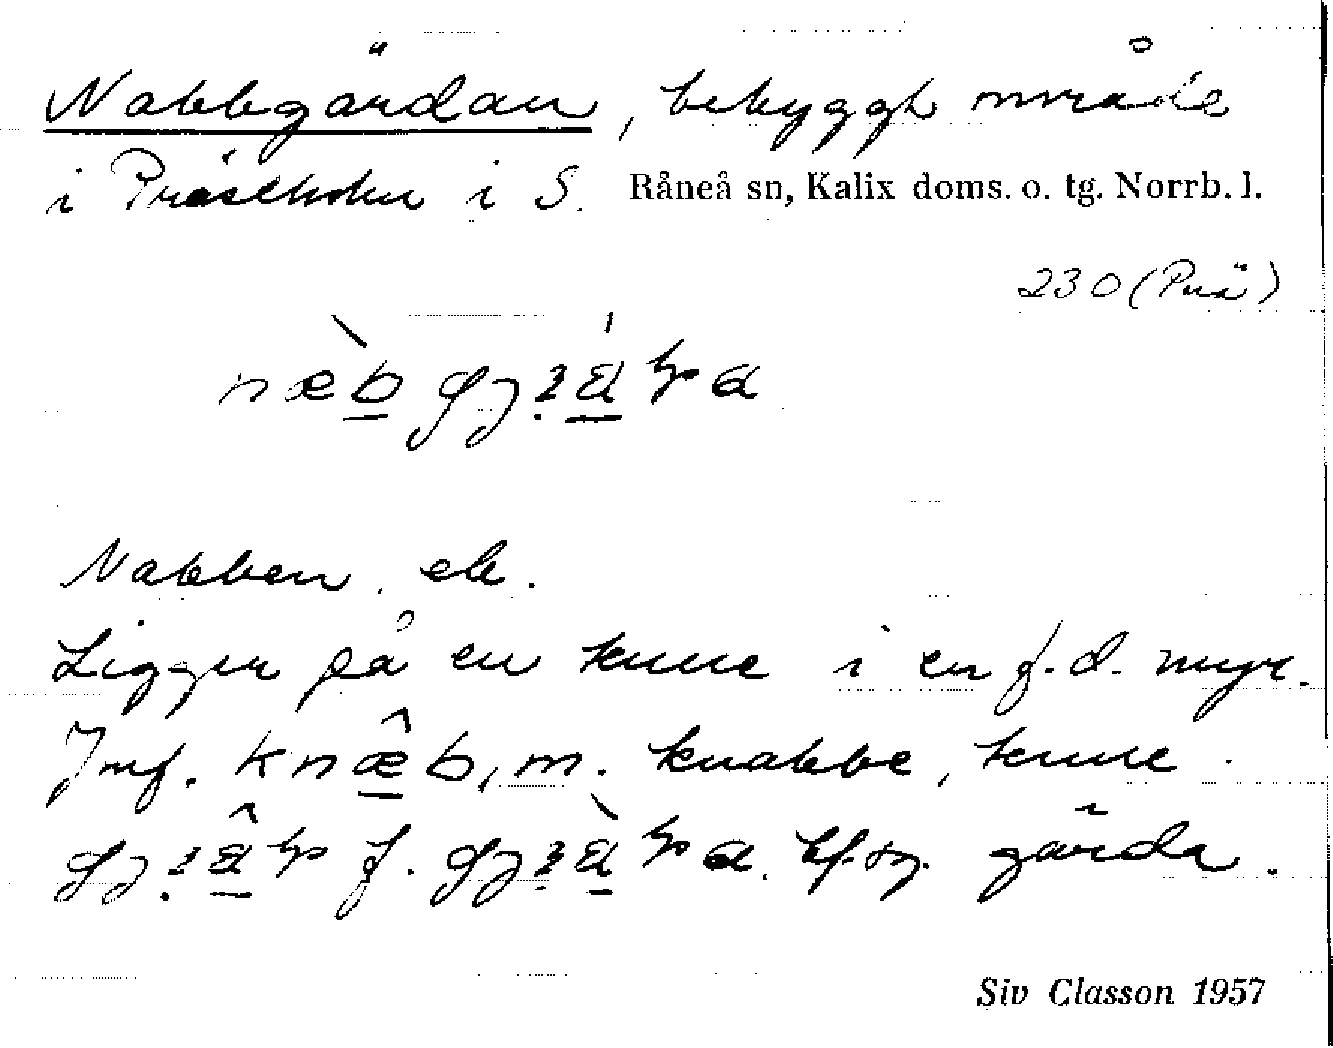 Nabbgärdan, bebyggt område
i Prästholm i S. Råneå sn, Kalix doms. o. tg. Norrb. l.
230 (Prä)
Nabben, ek.
Ligger på en kulle i en f.d. myr.
Jmf. knæ̂b, m. knabbe, kulle.
f. bf. sg. gärda.
Siv Classon 1957